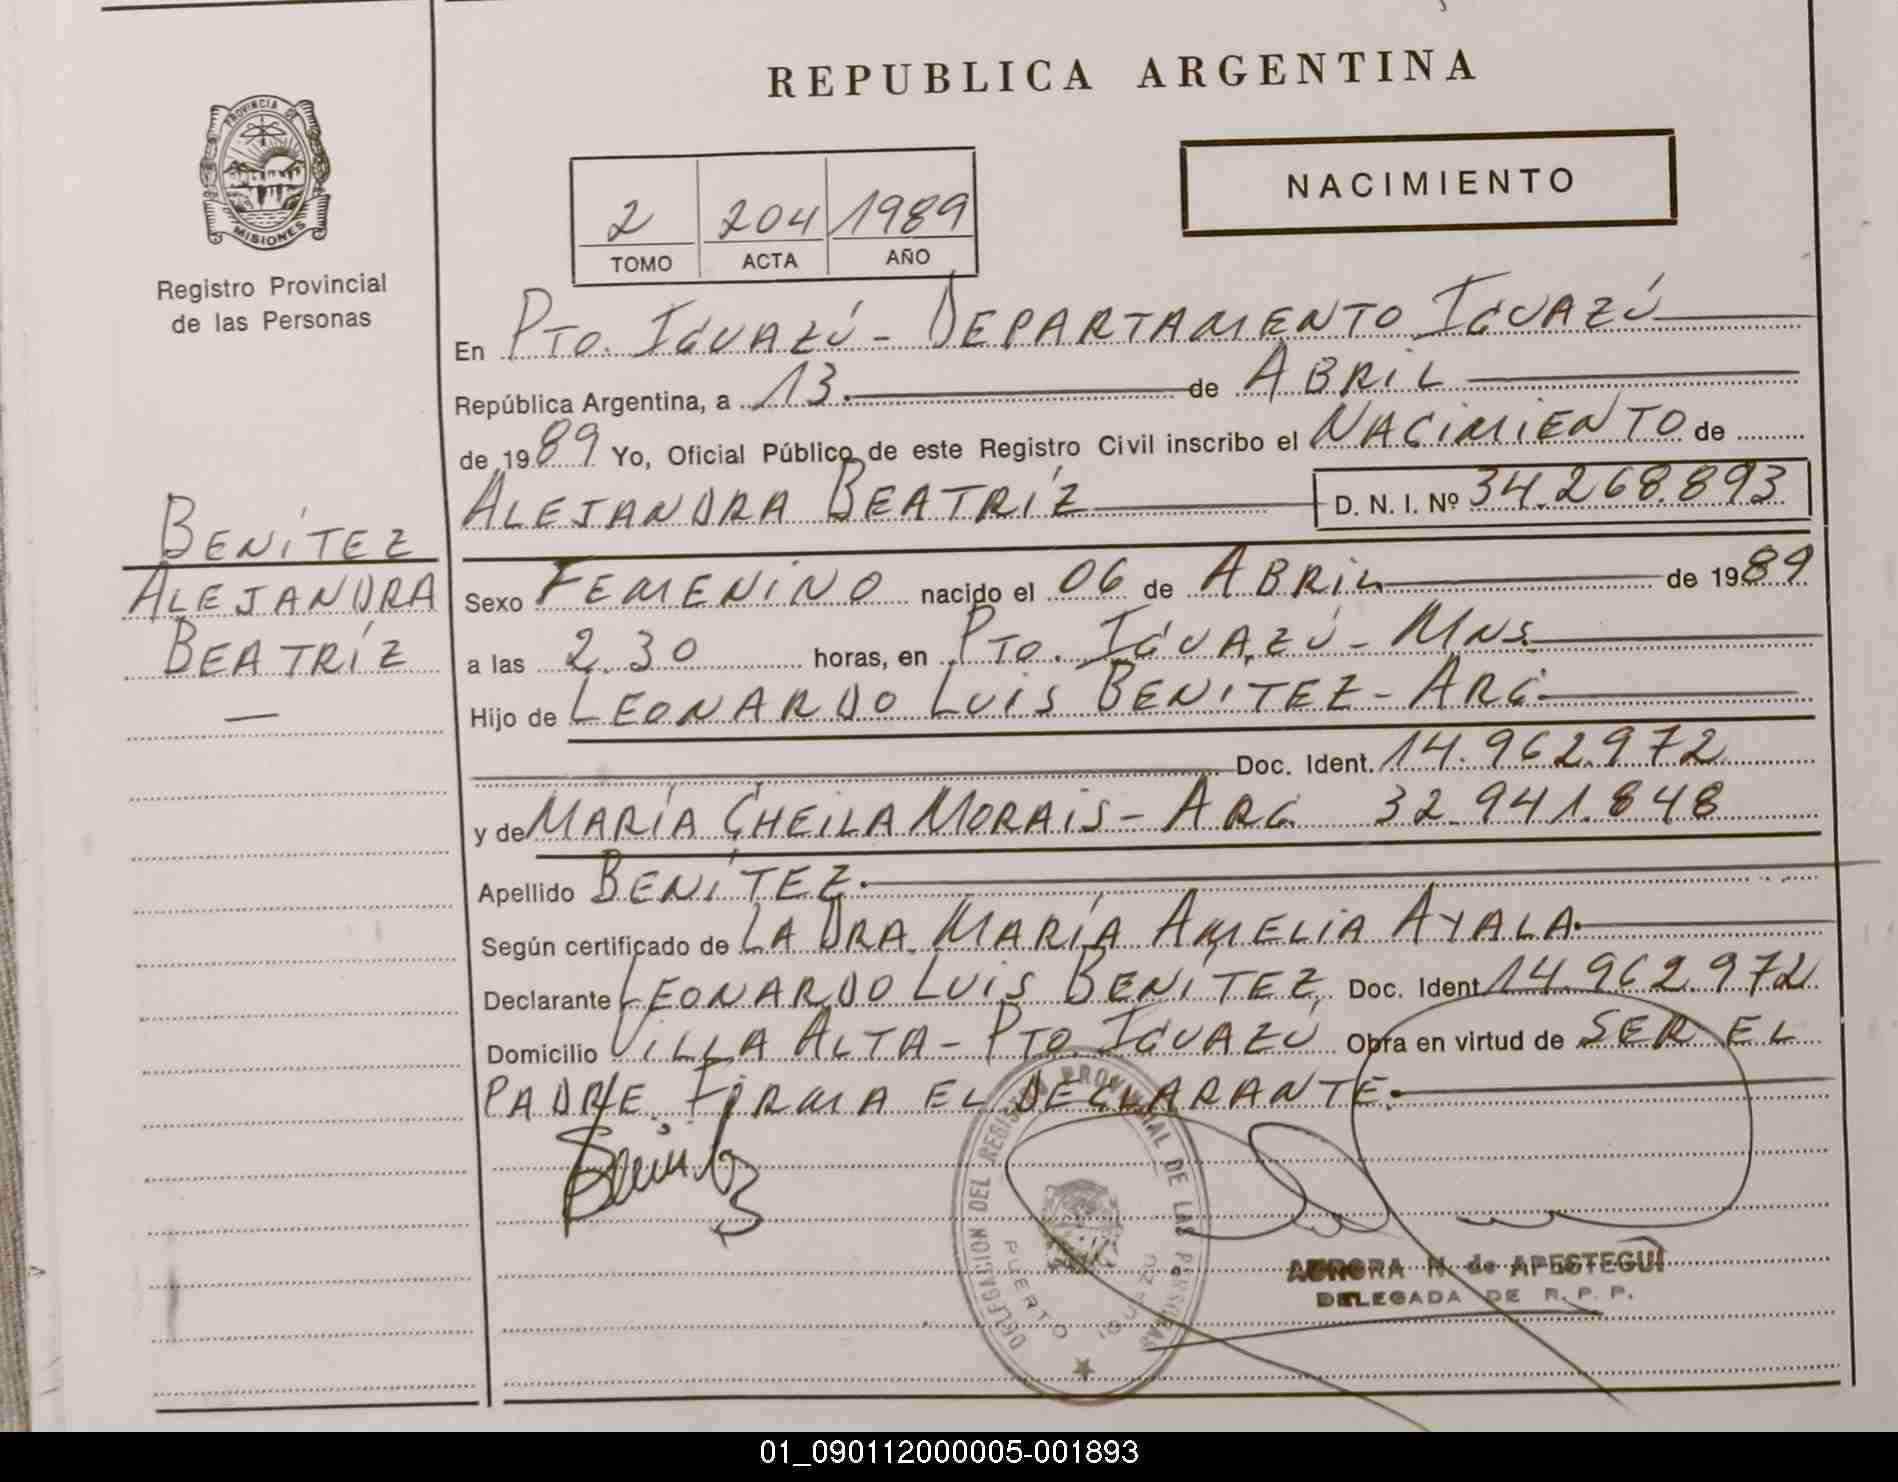 REPUBLICA ARGENTINA
PROVINCIA DE
MISIONES
Registro Provincial
de las Personas
NACIMIENTO
2 204 1989
TOMO ACTA AÑO
En PTO. IGUAZÚ - DEPARTAMENTO IGUAZÚ
República Argentina, a 13 de ABRIL
de 1989 Yo, Oficial Público de este Registro Civil inscribo el NACIMIENTO de
ALEJANDRA BEATRÍZ D. N. I. Nº 34.268.893
BENÍTEZ
ALEJANDRA
BEATRÍZ
Sexo FEMENINO nacido el 06 de ABRIL de 1989
a las 2.30 horas, en PTO. IGUAZÚ - MNS.
Hijo de LEONARDO LUIS BENITEZ - ARG.
Doc. Ident. 14.962.972
y de MARÍA CHEILA MORAIS - ARG. 32.941.848
Apellido BENÍTEZ.
Según certificado de LA DRA. MARÍA AMELIA AYALA
Declarante LEONARDO LUIS BENITEZ Doc. Ident. 14.962.972
Domicilio VILLA ALTA - PTO. IGUAZÚ Obra en virtud de SER EL
PADRE. FIRMA EL DECLARANTE.
DELEGACION DEL REGISTRO PROVINCIAL DE LAS PERSONAS
PUERTO IGUAZU
AURORA N. de APESTEGUI
DELEGADA DE R. P. P.
01_090112000005-001893